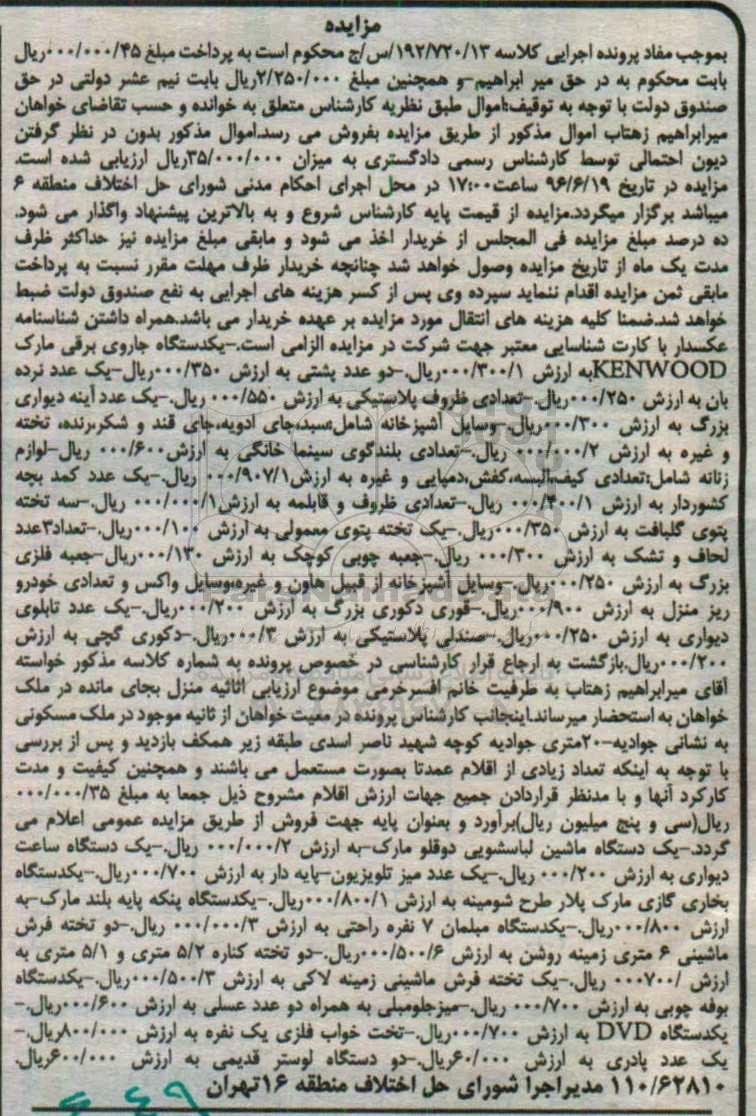 مزایده
بموجب مفاد پرونده اجرایی کلاسه ۱۹۲/۷۲۰/۱۳/س/ج محکوم است به پرداخت مبلغ ۰۰۰/۰۰۰/۴۵ریال
بابت محکوم به در حق میر ابراهیم-و همچنین مبلغ ۲/۲۵۰/۰۰۰ریال بابت نیم عشر دولتی در حق
صندوق دولت با توجه به توقیف؛اموال طبق نظریه کارشناس متعلق به خوانده و حسب تقاضای خواهان
میرابراهیم زهتاب اموال مذکور از طریق مزایده بفروش می رسد.اموال مذکور بدون در نظر گرفتن
دیون احتمالی توسط کارشناس رسمی دادگستری به میزان ۳۵/۰۰۰/۰۰۰ریال ارزیابی شده است.
مزایده در تاریخ ۹۶/۶/۱۹ ساعت۱۷:۰۰ در محل اجرای احکام مدنی شورای حل اختلاف منطقه ۶
میباشد برگزار میگردد.مزایده از قیمت پایه کارشناس شروع و به بالاترین پیشنهاد واگذار می شود.
ده درصد مبلغ مزایده فی المجلس از خریدار اخذ می شود و مابقی مبلغ مزایده نیز حداکثر ظرف
مدت یک ماه از تاریخ مزایده وصول خواهد شد چنانچه خریدار ظرف مهلت مقرر نسبت به پرداخت
مابقی ثمن مزایده اقدام ننماید سپرده وی پس از کسر هزینه های اجرایی به نفع صندوق دولت ضبط
خواهد شد.ضمنا کلیه هزینه های انتقال مورد مزایده بر عهده خریدار می باشد.همراه داشتن شناسنامه
عکسدار یا کارت شناسایی معتبر جهت شرکت در مزایده الزامی است.-یکدستگاه جاروی برقی مارک
KENWOODبه ارزش ۰۰۰/۳۰۰/۱ریال.-دو عدد پشتی به ارزش ۰۰۰/۳۵۰ریال-یک عدد نرده
بان به ارزش ۰۰۰/۲۵۰ریال.-تعدادی ظروف پلاستیکی به ارزش ۰۰۰/۵۵۰ ریال.-یک عدد آینه دیواری
بزرگ به ارزش ۰۰۰/۳۰۰ریال-وسایل آشپزخانه شامل:سبد،جای ادویه،جای قند و شکر،رنده، تخته
و غیره به ارزش ۰۰۰/۰۰۰/۲ ریال.-تعدادی بلندگوی سینما خانگی به ارزش۰۰۰/۶۰۰ ریال-لوازم
زنانه شامل:تعدادی کیف،البسه،کفش،دمپایی و غیره به ارزش۰۰۰/۹۰۷/۱ ریال.-یک عدد کمد بچه
کشوردار به ارزش ۰۰۰/۴۰۰/۱ ریال.-تعدادی ظروف و قابلمه به ارزش۰۰۰/۰۰۰/۱ ریال.-سه تخته
پتوی گلبافت به ارزش ۰۰۰/۳۵۰ریال.-یک تخته پتوی معمولی به ارزش ۰۰۰/۱۰۰ریال.-تعداد۳عدد
لحاف و تشک به ارزش ۰۰۰/۳۰۰ ریال.-جعبه چوبی کوچک به ارزش ۰۰۰/۱۳۰ریال-جعبه فلزی
بزرگ به ارزش ۰۰۰/۲۵۰ریال.-وسایل آشپزخانه از قبیل هاون و غیره،وسایل واکس و تعدادی خودرو
ریز منزل به ارزش ۰۰۰/۹۰۰ریال.-قوری دکوری بزرگ به ارزش ۰۰۰/۲۰۰ریال.-یک عدد تابلوی
دیواری به ارزش ۰۰۰/۲۵۰ریال.-صندلی پلاستیکی به ارزش ۰۰۰/۳ریال.-دکوری گچی به ارزش
۰۰۰/۲۰۰ریال.بازگشت به ارجاع قرار کارشناسی در خصوص پرونده به شماره کلاسه مذکور خواسته
آقای میرابراهیم زهتاب به طرفیت خانم افسرخرمی موضوع ارزیابی اثاثیه منزل بجای مانده در ملک
خواهان به استحضار میرساند.اینجانب کارشناس پرونده در معیت خواهان از ثانیه موجود در ملک مسکونی
به نشانی جوادیه-۲۰متری جوادیه کوچه شهید ناصر اسدی طبقه زیر همکف بازدید و پس از بررسی
با توجه به اینکه تعداد زیادی از اقلام عمدتا بصورت مستعمل می باشند و همچنین کیفیت و مدت
کارکرد آنها و با مدنظر قراردادن جمیع جهات ارزش اقلام مشروح ذیل جمعا به مبلغ ۰۰۰/۰۰۰/۳۵
ریال(سی و پنج میلیون ریال)برآورد و بعنوان پایه جهت فروش از طریق مزایده عمومی اعلام می
گردد.-یک دستگاه ماشین لباسشویی دوقلو مارک-به ارزش ۰۰۰/۰۰۰/۲ ریال.-یک دستگاه ساعت
دیواری به ارزش ۰۰۰/۲۰۰ ریال.-یک عدد میز تلویزیون-پایه دار به ارزش ۰۰۰/۷۰۰ریال.-یکدستگاه
بخاری گازی مارک پلار طرح شومینه به ارزش ۰۰۰/۸۰۰/۱ریال.-یکدستگاه پنکه پایه بلند مارک-به
ارزش ۰۰۰/۸۰۰ریال.-یکدستگاه مبلمان ۷ نفره راحتی به ارزش ۰۰۰/۰۰۰/۳ ریال.-دو تخته فرش
ماشینی ۶ متری زمینه روشن به ارزش ۰۰۰/۵۰۰/۶ریال.-دو تخته کناره ۵/۲ متری و ۵/۱ متری به
ارزش /۰۰۰۷۰۰ ریال.-یک تخته فرش ماشینی زمینه لاکی به ارزش ۰۰۰/۵۰۰/۳ریال.-یکدستگاه
بوفه چوبی به ارزش ۰۰۰/۷۰۰ ریال.-میزجلومبلی به همراه دو عدد عسلی به ارزش ۰۰۰/۶۰۰ریال.-
یکدستگاه DVD به ارزش ۰۰۰/۷۰۰ریال.-تخت خواب فلزی یک نفره به ارزش ۸۰۰/۰۰۰ریال.-
یک عدد پادری به ارزش ۶۰/۰۰۰ریال.-دو دستگاه لوستر قدیمی به ارزش ۶۰۰/۰۰۰ریال.
۱۱۰/۶۲۸۱۰ مدیراجرا شورای حل اختلاف منطقه ۱۶تهران